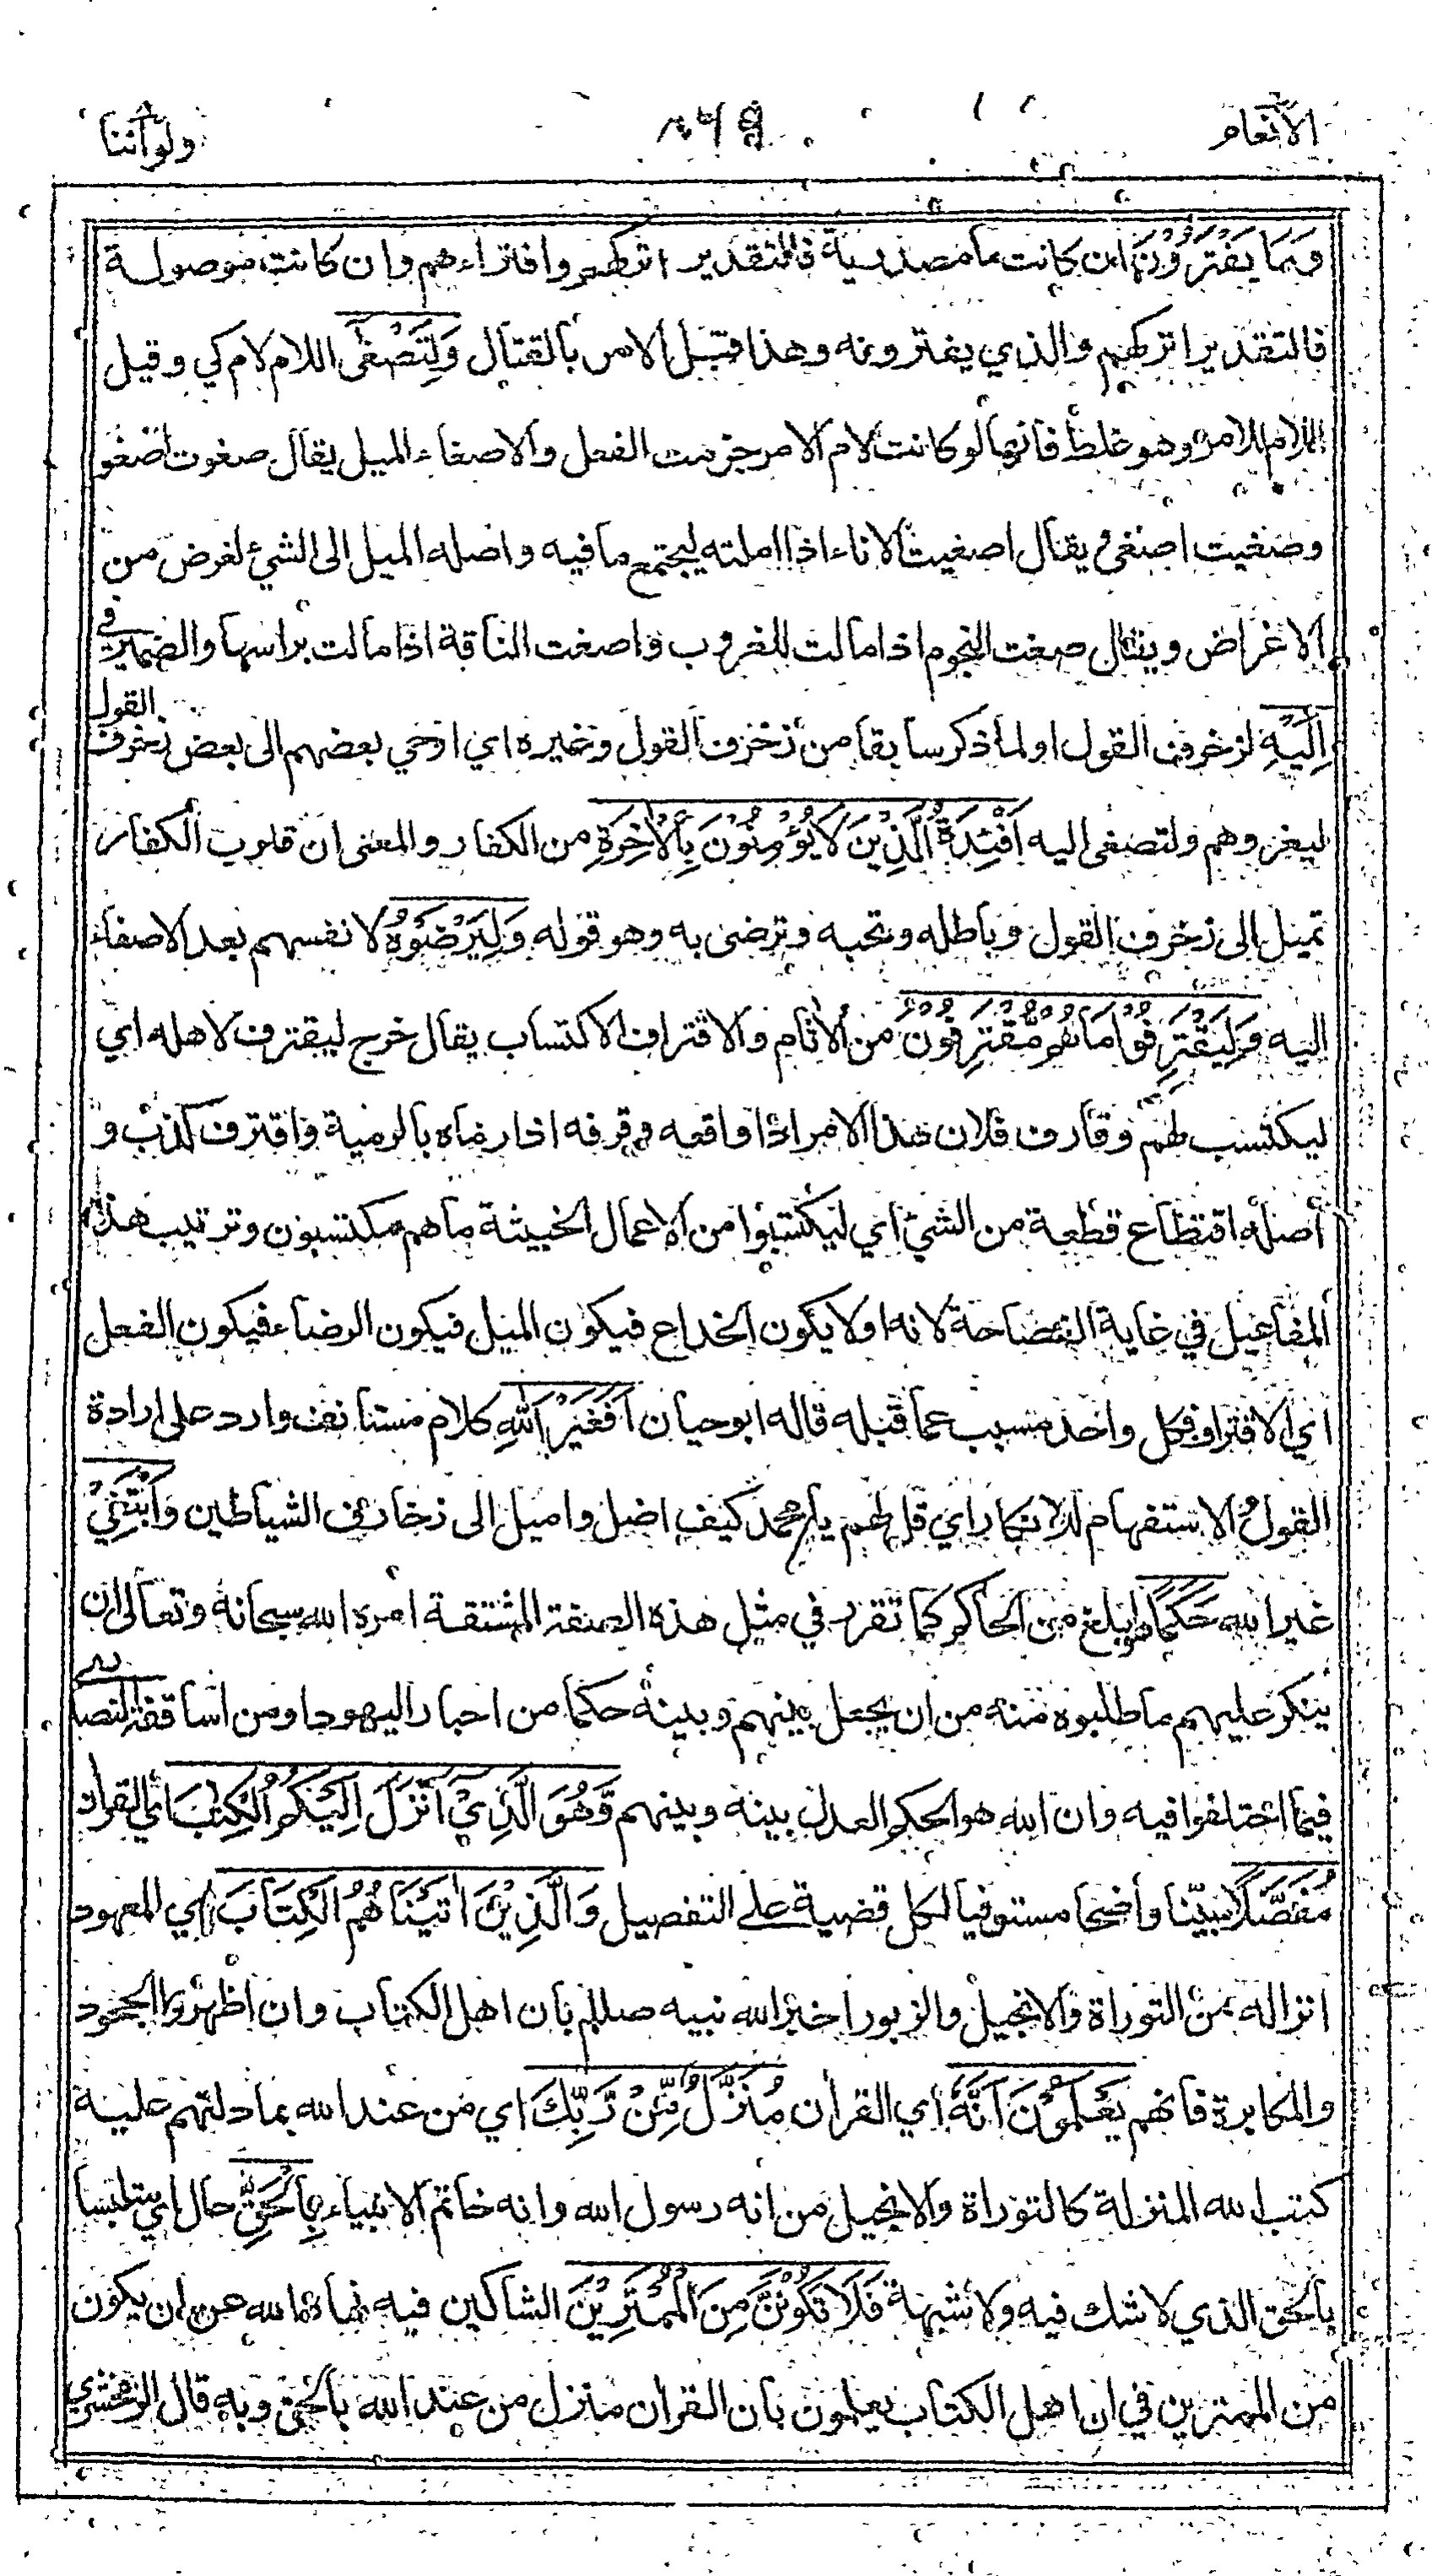 الأنعام
ولو أننا
وَمَا يَفْتَرُوْنَ ان كانت ما مصدرية فالتقدير اتركهم وافتراءهم وان كانت موصولة
فالتقدير اتركهم والذي يفترونه وهذا قبل الامر بالقتال وَلِتَصْغَى اللام لام كي وقيل
اللام للامر وهو غلط فانها لو كانت لام الامر جزمت الفعل والاصغاء الميل يقال صغوت اصغو
وصغيت اصغى ويقال اصغيت الاناء اذا املته ليجتمع ما فيه واصله الميل الى الشيء لغرض من
الاغراض ويقال صغت النجوم اذا مالت للغروب واصغت الناقة اذا مالت براسها والضمير في
اِلَيْهِ لزخرف القول او لما ذكر سابقا من زخرف القول وغيره اي اوحي بعضهم الى بعض زخرف القول
ليغروهم ولتصغى اليه اَفْئِدَةُ الَّذِيْنَ لَا يُؤْمِنُوْنَ بِالْاٰخِرَةِ من الكفار والمعنى ان قلوب الكفار
تميل الى زخرف القول وباطله وتحبه وترضى به وهو قوله وَلِيَرْضَوْهُ لانفسهم بعد الاصغاء
اليه وَلِيَقْتَرِفُوْا مَا هُمْ مُّقْتَرِفُوْنَ من الاثام والاقتراف الاكتساب يقال خرج ليقترف لاهله اي
ليكتسب لهم وقارف فلان هذا الامر اذا واقعه وقرفه اذا رماه بالريبة واقترف كذب و
أصله اقتطاع قطعة من الشيء اي ليكتسبوا من الاعمال الخبيثة ما هم مكتسبون وترتيب هذه
المفاعيل في غاية الفصاحة لانه اولا يكون الخداع فيكون الميل فيكون الرضاء فيكون الفعل
اي الاقتراف فكل واحد مسبب عما قبله قاله ابو حيان اَفَغَيْرَ اللهِ كلام مستانف وارد على ارادة
القول والاستفهام للانكار اي قل لهم يا محمد كيف اضل واميل الى زخارف الشياطين وَاَبْتَغِيْ
غير الله حَكَمًا هو ابلغ من الحاكم كما تقرر في مثل هذه الصفة المشتقة امره الله سبحانه وتعالى ان
ينكر عليهم ما طلبوه منه من ان يجعل بينهم وبينه حكما من احبار اليهود او من اساقفة النصارى
فيما اختلفوا فيه وان الله هو الحكم العدل بينه وبينهم وَّهُوَ الَّذِيْ اَنْزَلَ اِلَيْكُمُ الْكِتٰبَ اي القرأن
مُفَصَّلًا مبيّنا واضحا مستوفيا لكل قضية على التفصيل وَالَّذِيْنَ اٰتَيْنَاهُمُ الْكِتَابَ اي المعهود
انزاله من التوراة والانجيل والزبور اخبر الله نبيه صللم بان اهل الكتاب وان اظهروا الجحود
والمكابرة فانهم يَعْلَمُوْنَ اَنَّهٗ أي القرأن مُنَزَّلٌ مِّنْ رَّبِّكَ اي من عند الله بما دلتهم عليه
كتب الله المنزلة كالتوراة والانجيل من انه رسول الله وانه خاتم الانبياء بِالْحَقِّ حال اي متلبسا
بالحق الذي لا شك فيه ولا شبهة فَلَا تَكُوْنَنَّ مِنَ الْمُمْتَرِيْنَ الشاكين فيه نهاه الله عن ان يكون
من الممترين في ان اهل الكتاب يعلمون بان القرأن منزل من عند الله بالحق وبه قال الزمخشري